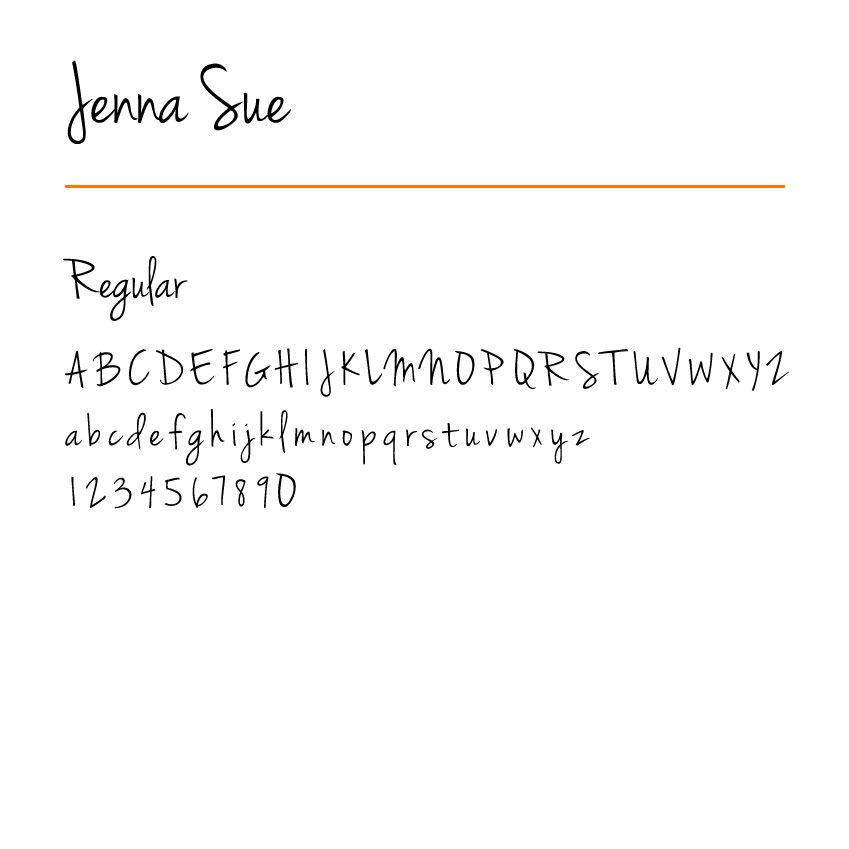 Jenna Sue
Regular
ABCDEFGHIJKLMNOPQRSTUVWXYZ
abcdefghijklmnopqrstuvwxyz
1234567890